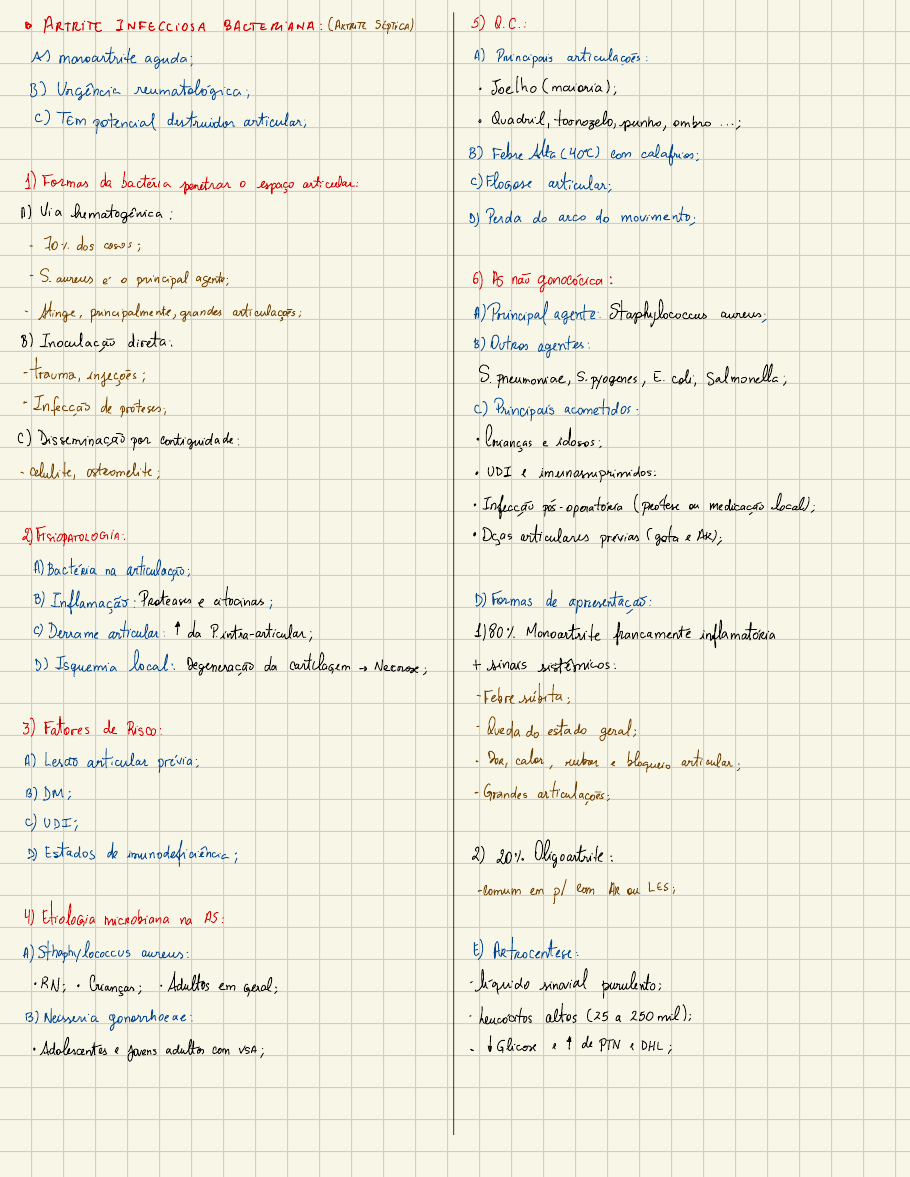 ARTRITE INFECCIOSA BACTERIANA: (ARTRITE SÉPTICA)
A) monoartrite aguda;
B) Urgência reumatológica;
C) Tem potencial destruidor articular;
1) Formas da bactéria penetrar o espaço articular:
A) Via hematogênica:
- 70% dos casos;
- S. aureus é o principal agente;
- Atinge, principalmente, grandes articulações;
B) Inoculação direta:
- trauma, injeções;
- Infecção de próteses;
C) Disseminação por contiguidade:
- celulite, osteomelite;
2) FISIOPATOLOGIA:
A) Bactéria na articulação;
B) Inflamação: Proteases e citocinas;
C) Derrame articular: ↑ da P. intra-articular;
D) Isquemia local: Degeneração da cartilagem → Necrose;
3) Fatores de Risco:
A) Lesão articular prévia;
B) DM;
C) UDI;
D) Estados de imunodeficiência;
4) Etiologia microbiana na AS:
A) Sthaphylococcus aureus:
· RN; · Crianças; · Adultos em geral;
B) Neisseria gonorrhoeae:
· Adolescentes e jovens adultos com VSA;
5) Q.C.:
A) Principais articulações:
· Joelho (maioria);
· Quadril, tornozelo, punho, ombro ...;
B) Febre Alta (40°C) com calafrios;
C) Flogose articular;
D) Perda do arco do movimento;
6) AS não gonocócica:
A) Principal agente: Staphylococcus aureus;
B) Outros agentes:
S. pneumoniae, S. pyogenes, E. coli, Salmonella;
C) Principais acometidos:
· Crianças e idosos;
· UDI e imunossuprimidos:
· Infecção pós-operatória (prótese ou medicação local);
· Dças articulares prévias (gota e AR);
D) Formas de apresentação:
1) 80% Monoartrite francamente inflamatória
+ sinais sistêmicos:
- Febre súbita;
- Queda do estado geral;
- Dor, calor, rubor e bloqueio articular;
- Grandes articulações;
2) 20% Oligoartrite:
- Comum em p/ com AR ou LES;
E) Artrocentese:
- líquido sinovial purulento;
· Leucócitos altos (25 a 250 mil);
- ↓ Glicose e ↑ de PTN e DHL;